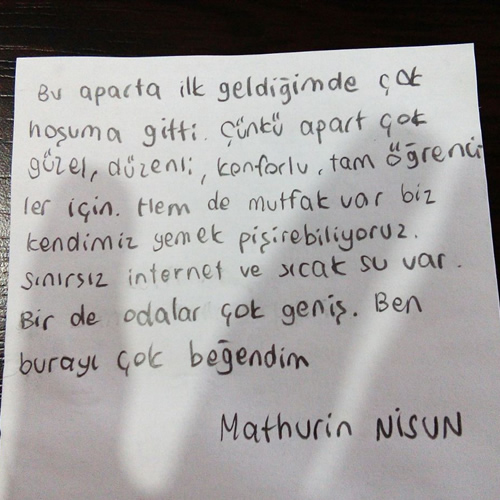 Bu aparta ilk geldiğimde çok
hoşuma gitti. Çünkü apart çok
güzel, düzenli, konforlu, tam öğrenci
ler için. Hem de mutfak var biz
kendimiz yemek pişirebiliyoruz.
sınırsız internet ve sıcak su var.
Bir de odalar çok geniş. Ben
burayı çok beğendim
Mathurin NİSUN